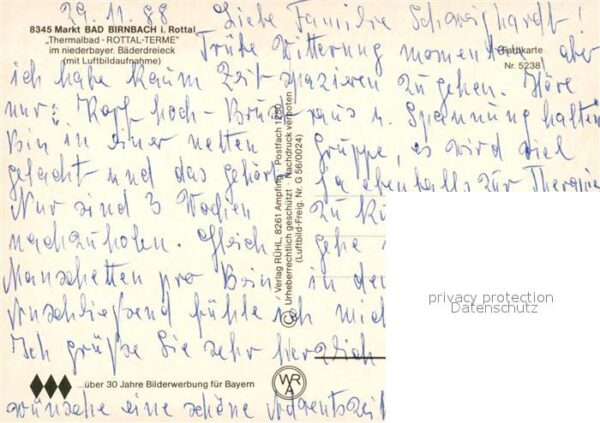 29.11.88 Liebe Familie Schweighardt!
8345 Markt BAD BIRNBACH i. Rottal
„Thermalbad - ROTTAL-TERME"
im niederbayer. Bäderdreieck
(mit Luftbildaufnahme)
Farbkarte
Nr. 5238
Trübe Witterung momentan, aber
ich habe kaum Zeit spazieren zu gehen. Höre
nur: Kopf hoch - Brust raus u. Spannung halten
Bin in einer netten Gruppe, es wird viel
gelacht und das gehört ja ebenfalls zur Therapie
Nur sind 3 Wochen zu
nachzuholen. Gleich gehe
Manschetten pro Bein, in der
Anschließend fühle ich mich
Ich grüße Sie sehr herzlich
wünsche eine schöne Adventszeit
© Verlag RÜHL, 8261 Ampfing · Postfach 1250
Urheberrechtlich geschützt · Nachdruck verboten
(Luftbild-Freig. Nr. G 56/0024)
WRA
...über 30 Jahre Bilderwerbung für Bayern
privacy protection
Datenschutz